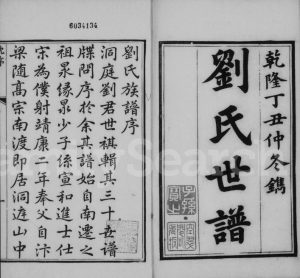 6034134
乾隆丁丑仲冬鐫
劉氏世譜
劉氏族譜序
洞庭劉君世祺輯其三十世譜
牒問序於余其譜始自南遷之
祖泉係㬅少子係宣和進士仕
宋為僕射靖康二年奉父自汴
梁隨高宗南渡即居洞庭山中